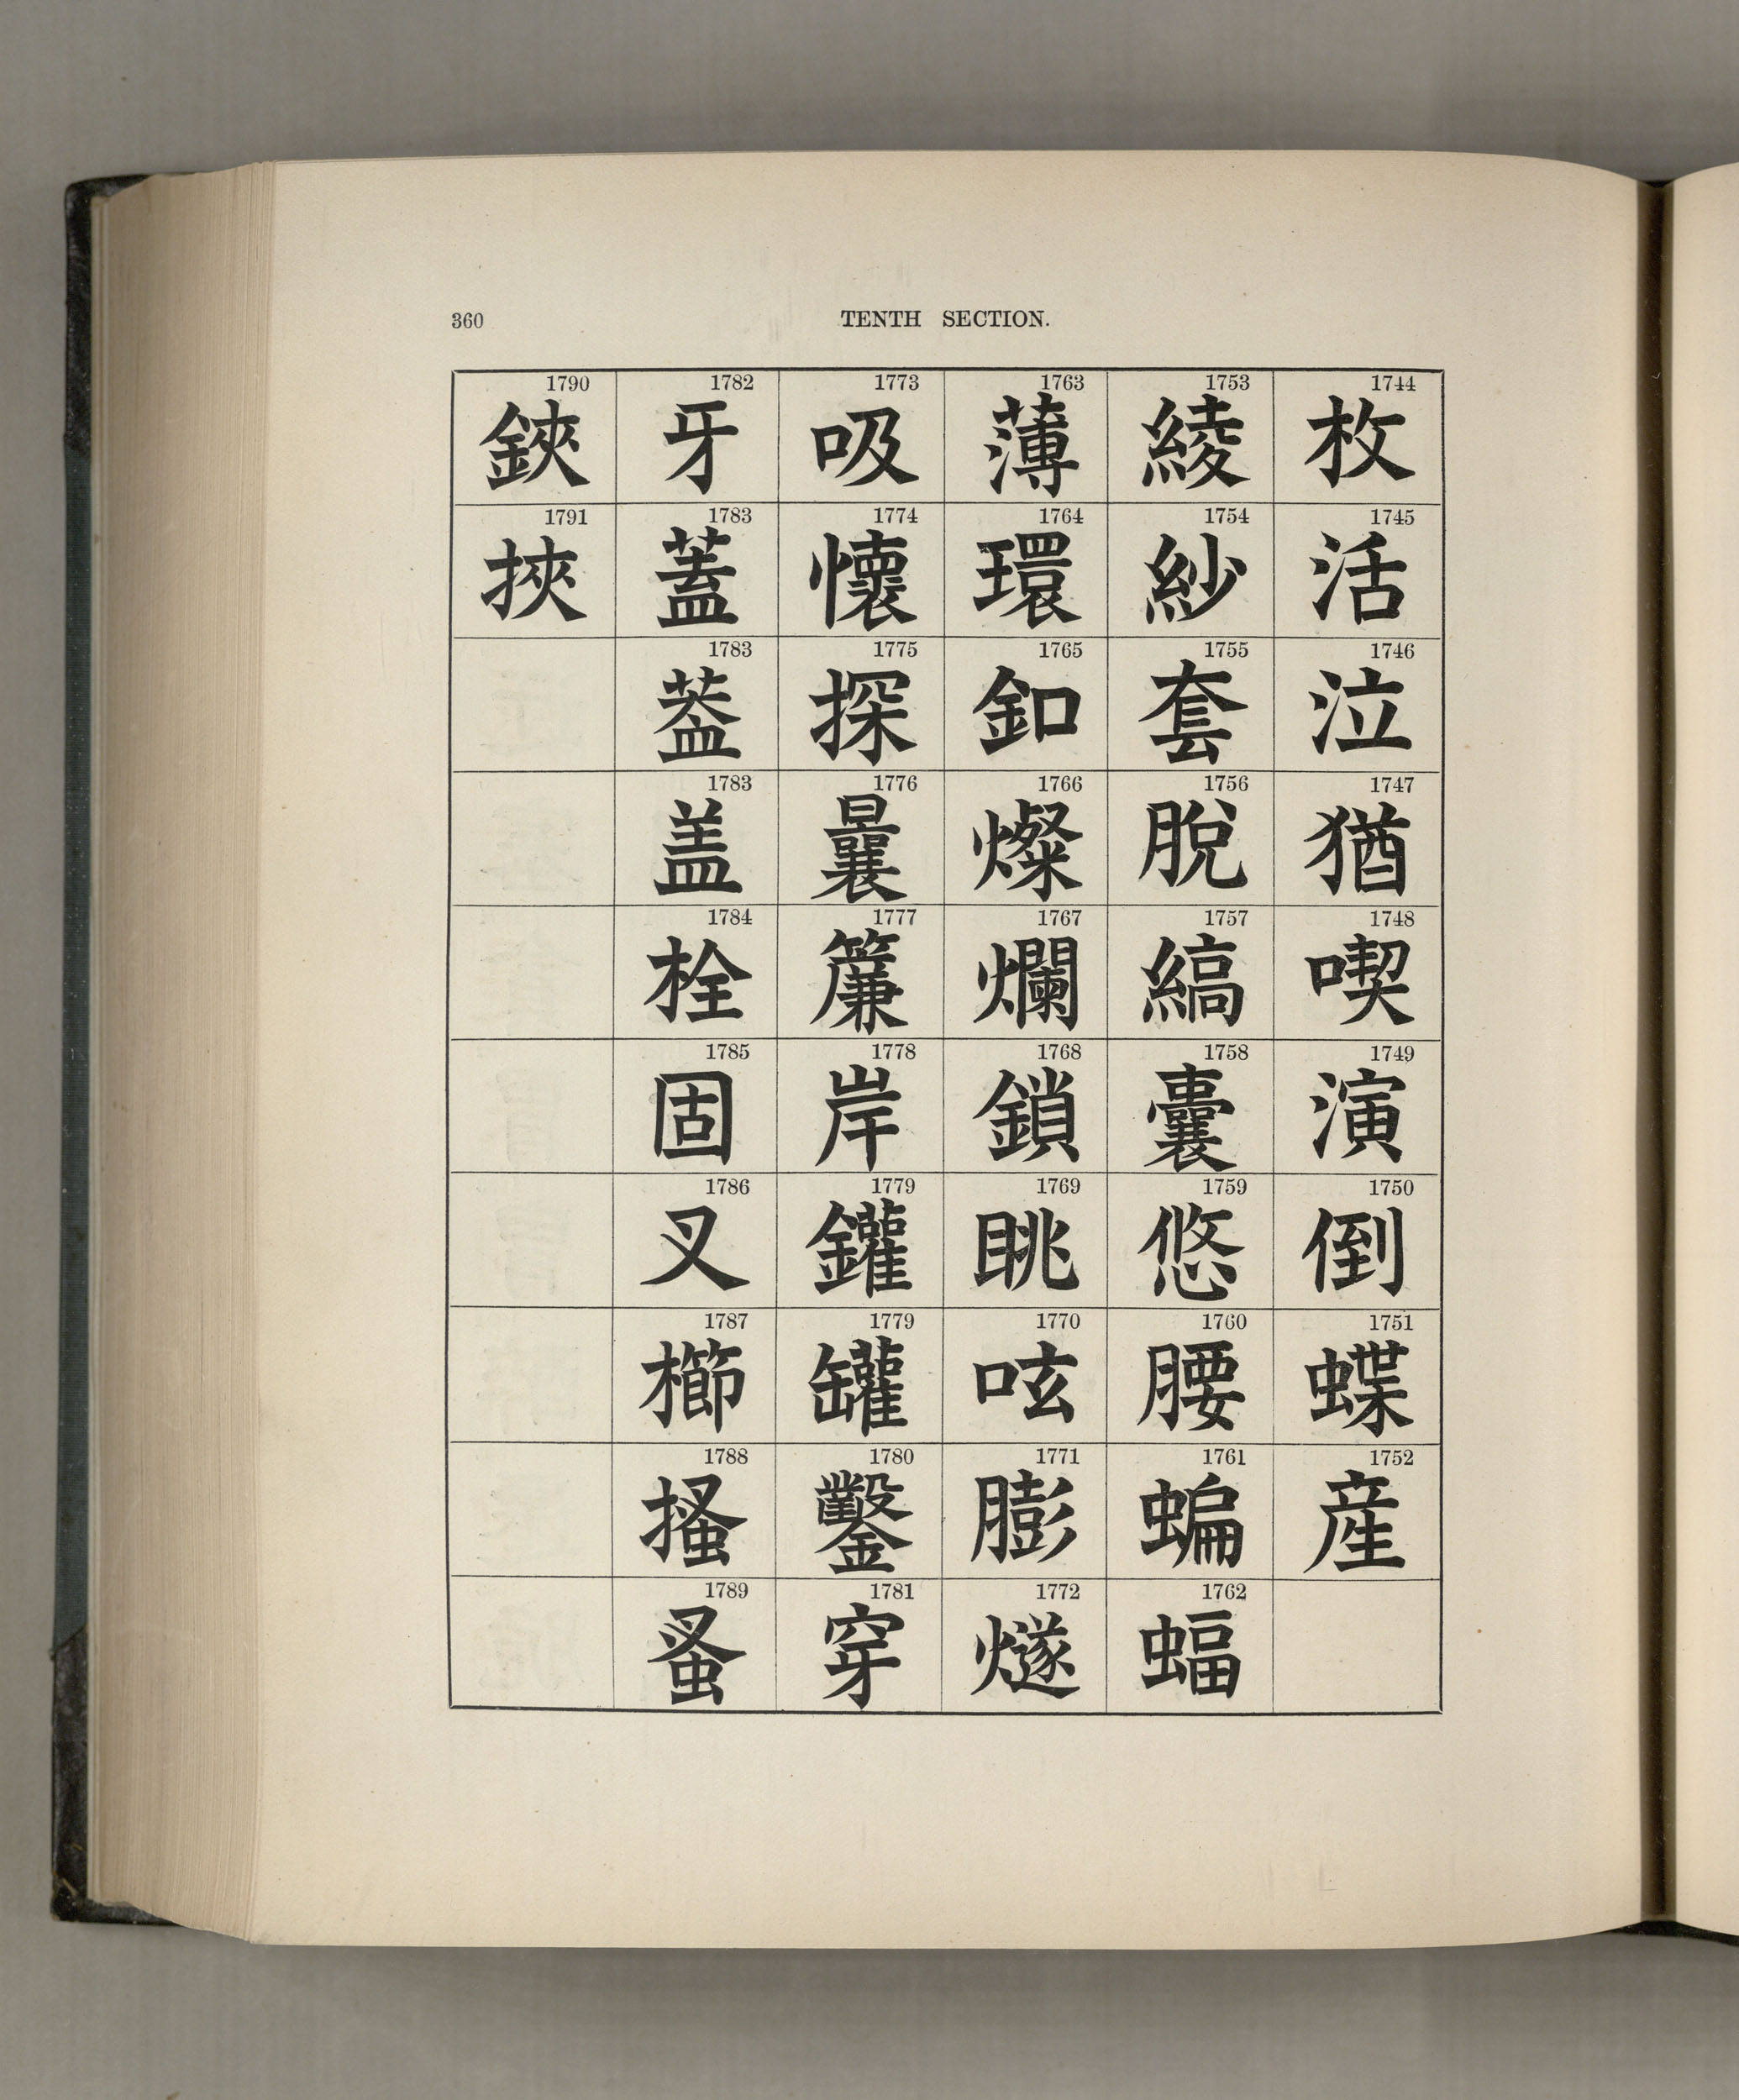 360 TENTH SECTION.
1744 枚
1745 活
1746 泣
1747 猶
1748 喫
1749 演
1750 倒
1751 蝶
1752 産
1753 綾
1754 紗
1755 套
1756 脫
1757 縞
1758 囊
1759 悠
1760 腰
1761 蝙
1762 蝠
1763 薄
1764 環
1765 釦
1766 燦
1767 爛
1768 鎖
1769 眺
1770 呟
1771 膨
1772 燧
1773 吸
1774 懷
1775 探
1776 曩
1777 簾
1778 岸
1779 鑵
1779 罐
1780 鑿
1781 穿
1782 牙
1783 蓋
1783 葢
1783 盖
1784 栓
1785 固
1786 叉
1787 櫛
1788 搔
1789 蚤
1790 鋏
1791 挾